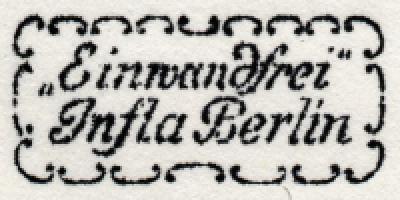 „Einwandfrei“
Infla Berlin